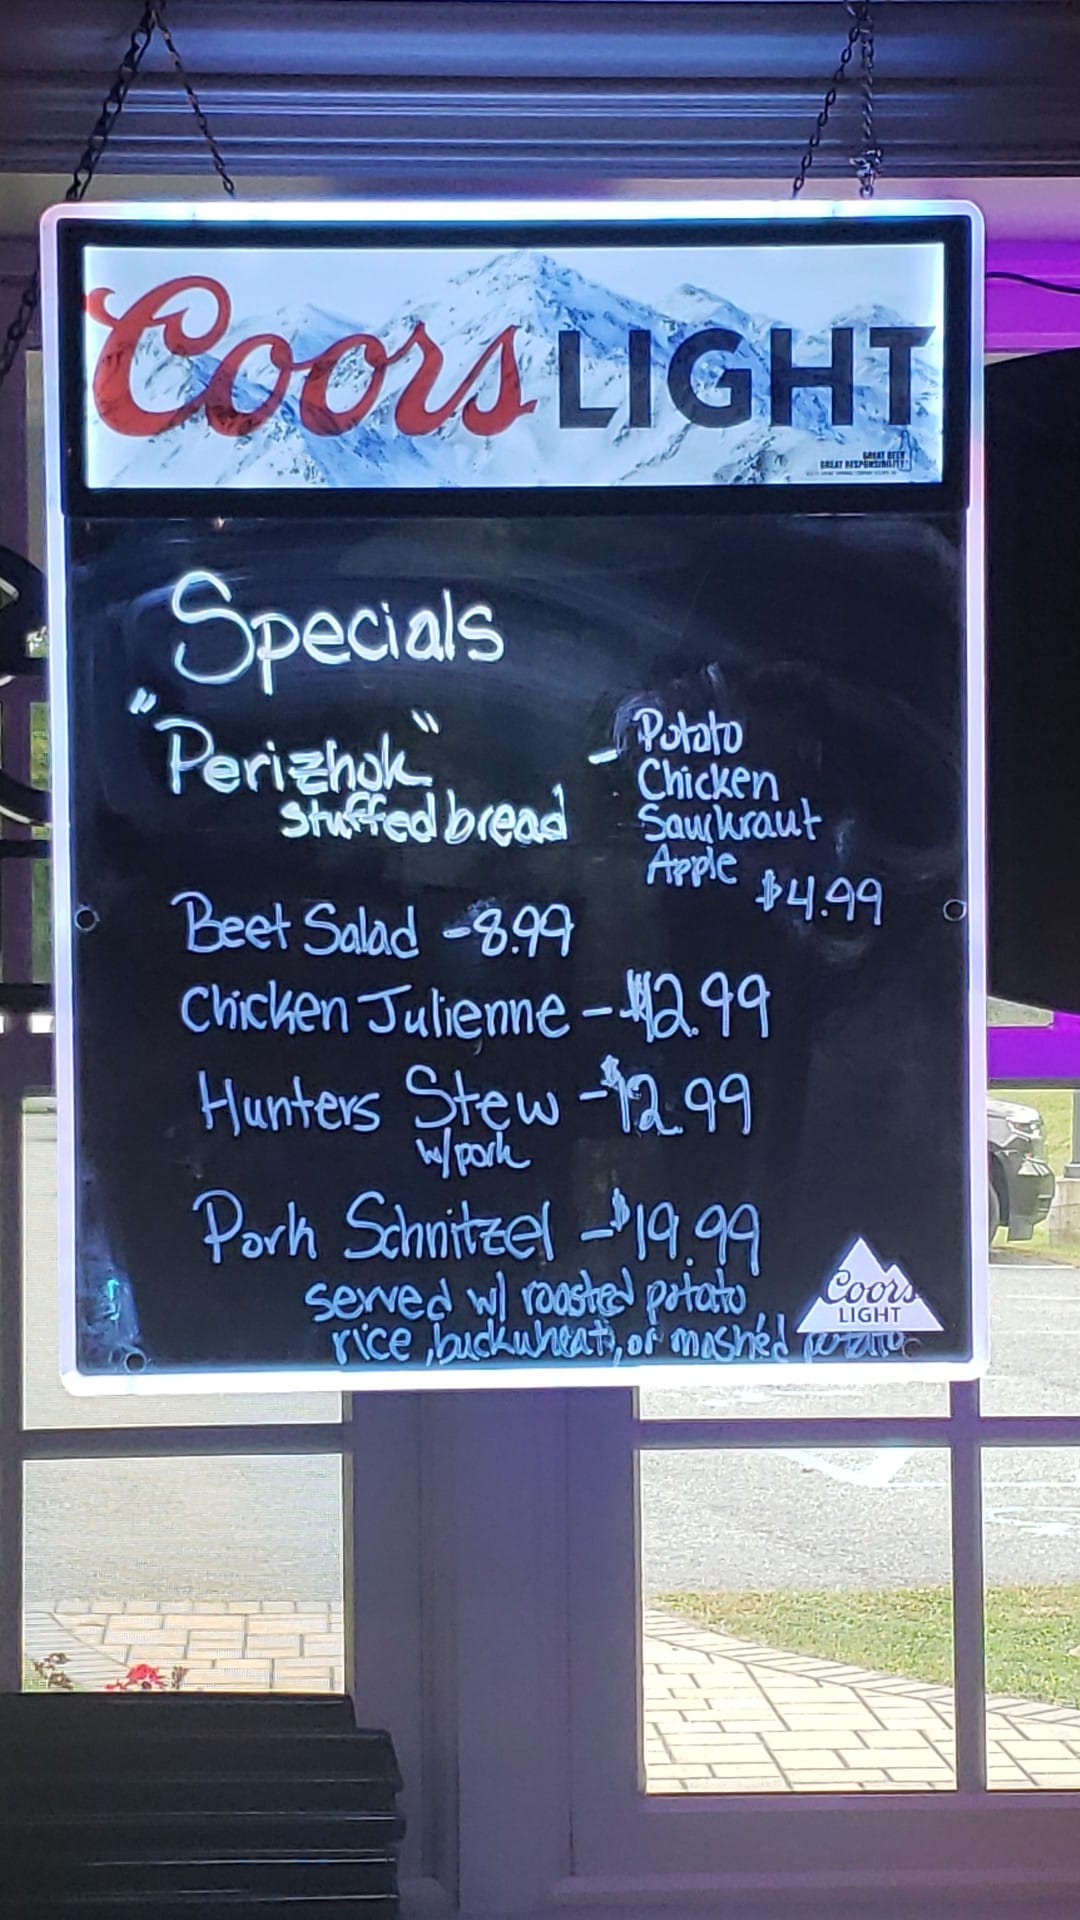 Coors LIGHT
GREAT BEER
GREAT RESPONSIBILITY
Specials
"Perizhok"
stuffed bread
- Potato
Chicken
Saurkraut
Apple
$4.99
Beet Salad - 8.99
Chicken Julienne - $12.99
Hunters Stew - $12.99
w/pork
Pork Schnitzel - $19.99
served w/ roasted potato,
rice, buckwheat, or mashed potato
Coors
LIGHT